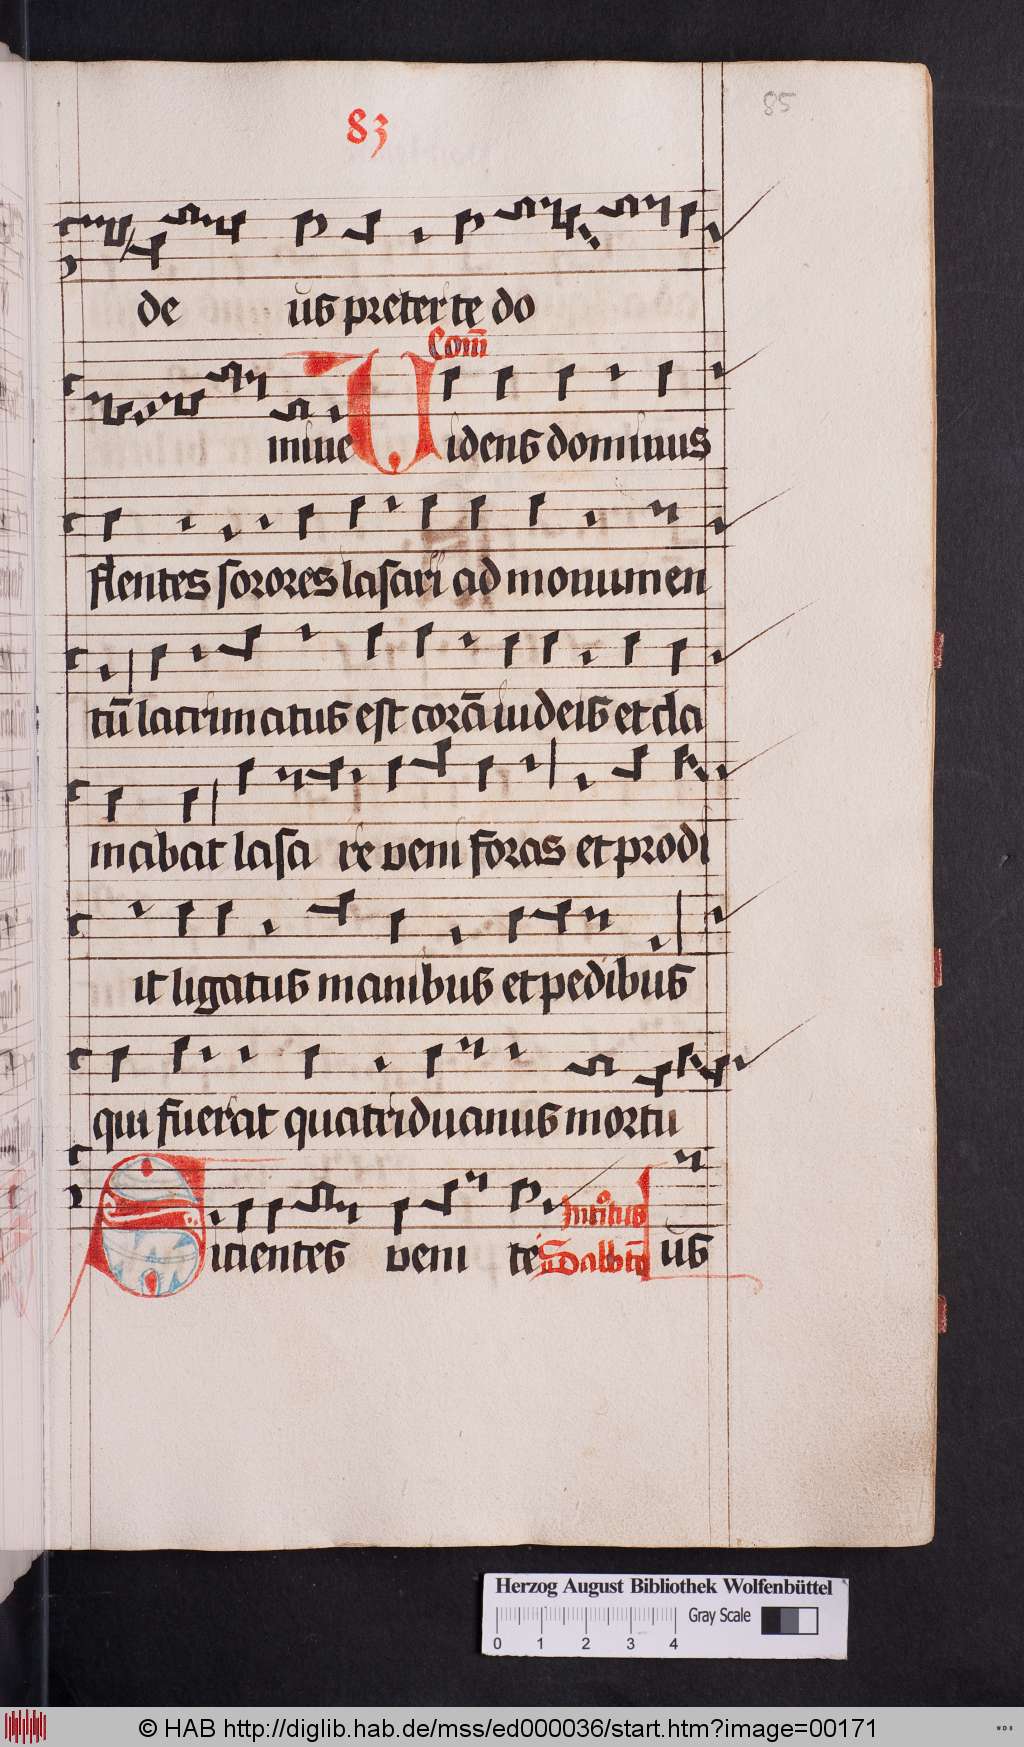 83
85
de us preter te do
Com̄
mine Videns dominus
flentes sorores lasari ad monumen
tū lacrimatus est corā iudeis et cla
mabat lasa re veni foras et prodi
it ligatus manibus et pedibus
qui fuerat quatriduanus mortu
Sicientes veni te Introitus us
Sabbto
Herzog August Bibliothek Wolfenbüttel
Gray Scale
0 1 2 3 4
© HAB http://diglib.hab.de/mss/ed000036/start.htm?image=00171